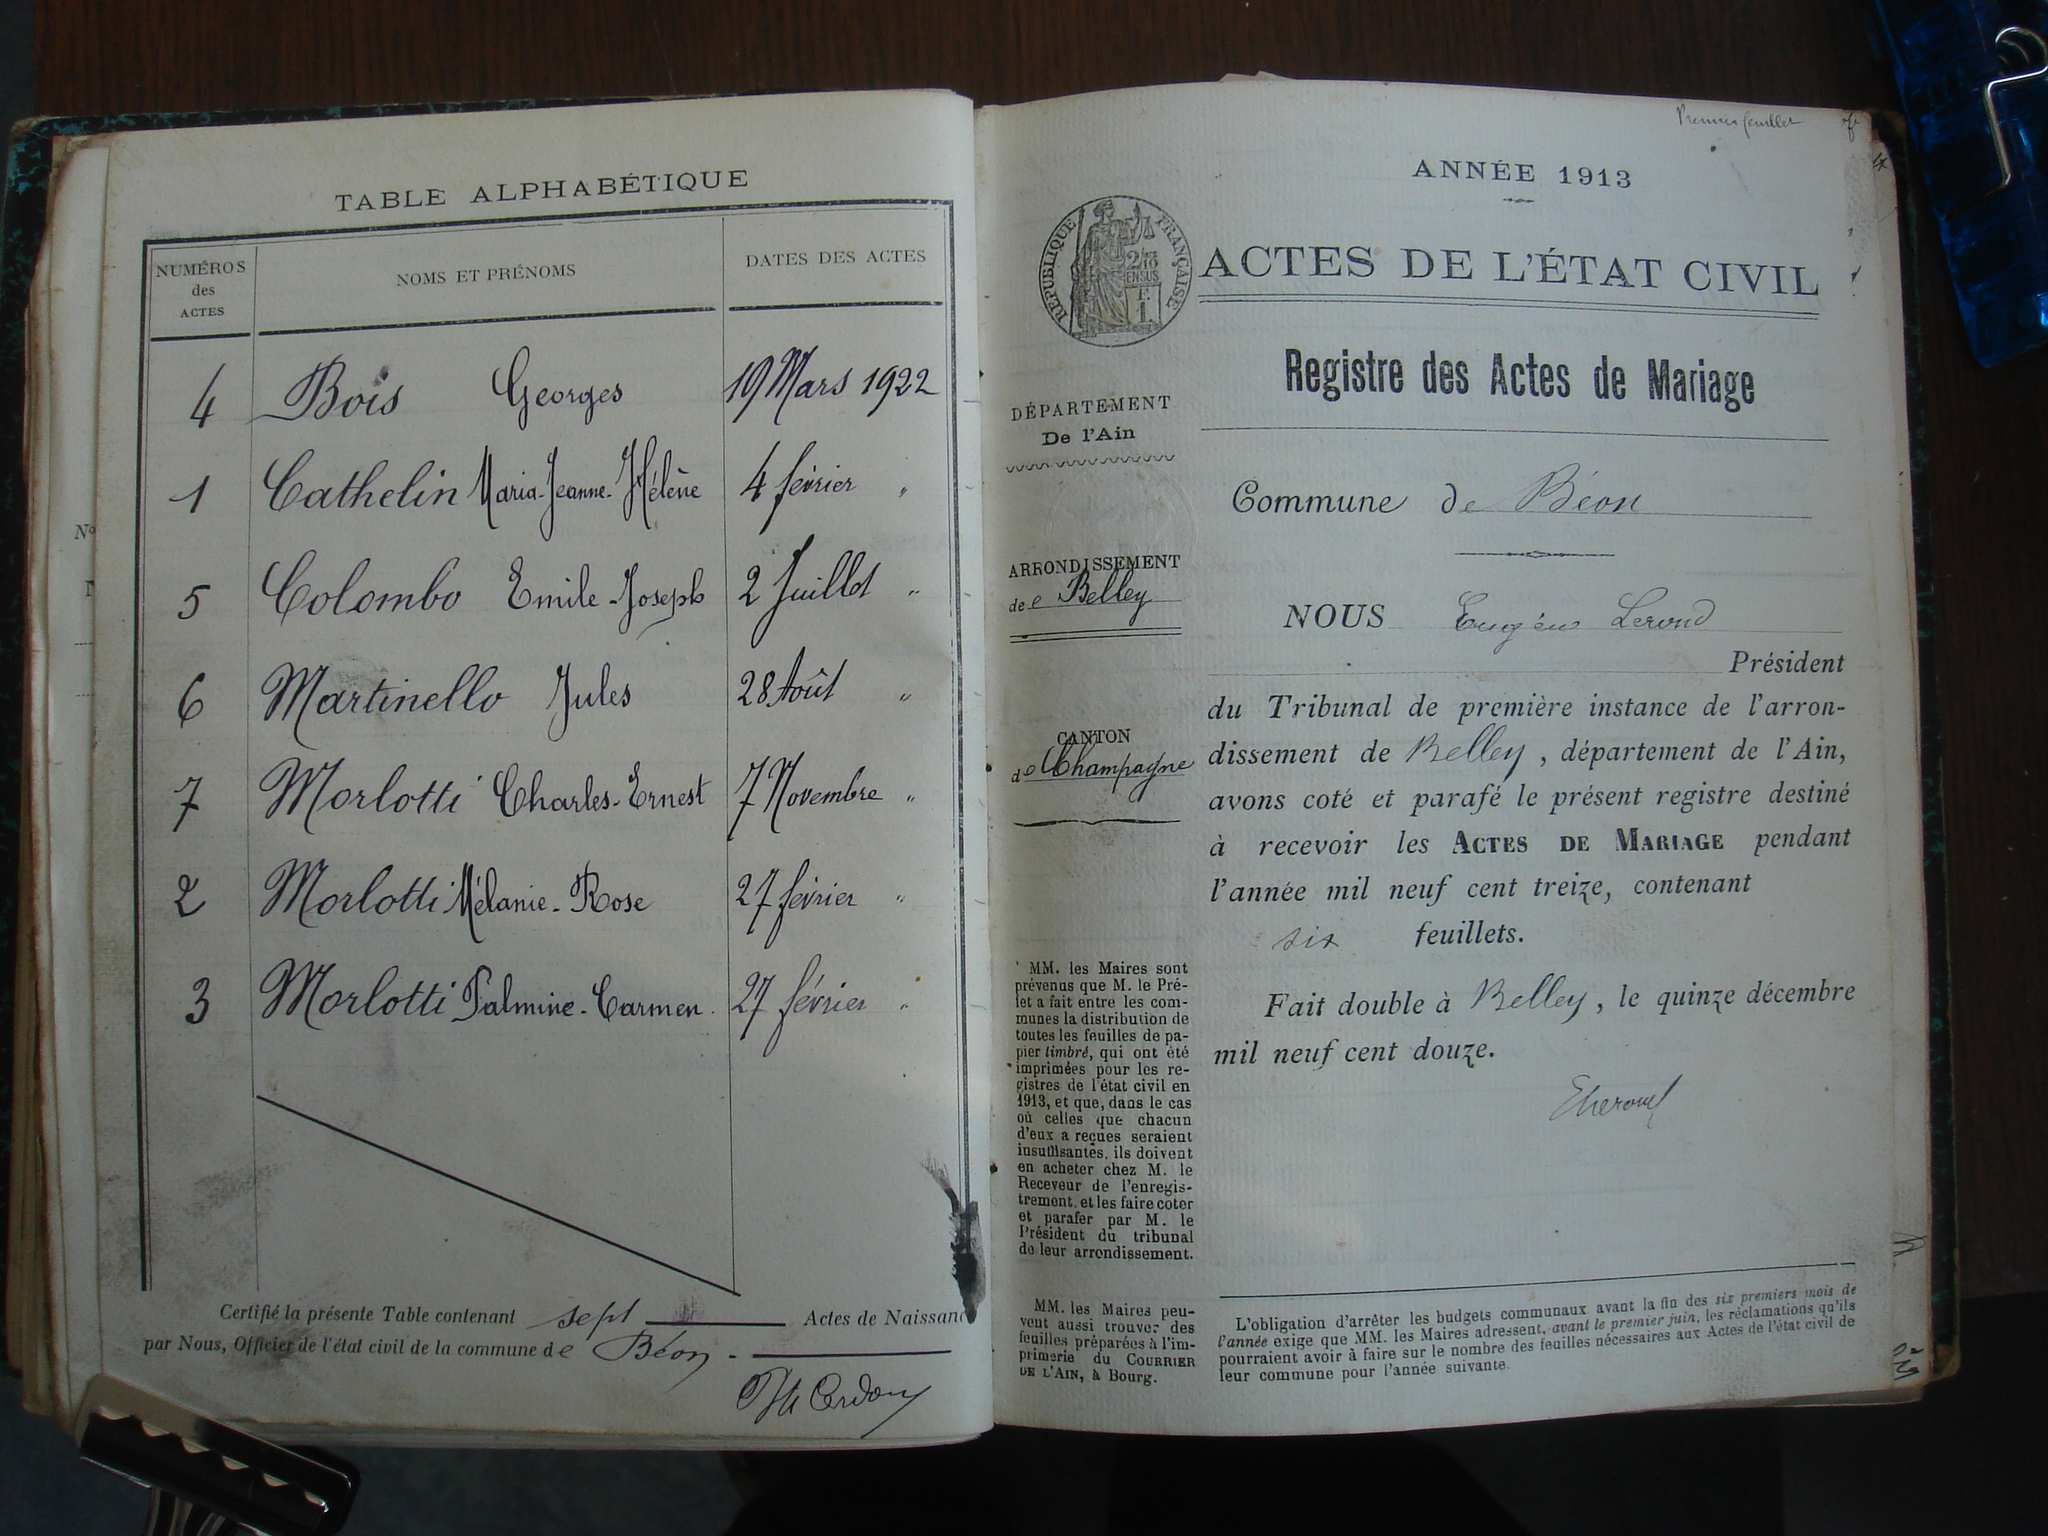 TABLE ALPHABÉTIQUE
NUMÉROS
des
ACTES
NOMS ET PRÉNOMS
DATES DES ACTES
4 Bois Georges 19 Mars 1922
1 Cathelin Maria-Jeanne-Hélène 4 février "
5 Colombo Emile-Joseph 2 Juillet "
6 Martinello Jules 28 Août "
7 Morlotti Charles-Ernest 7 Novembre "
2 Morlotti Mélanie-Rose 27 février "
3 Morlotti Palmine-Carmen. 27 février "
Certifié la présente Table contenant sept Actes de Naissanc
par Nous, Officier de l'état civil de la commune de Béon
Premier feuillet
ANNÉE 1913
RÉPUBLIQUE FRANÇAISE
2/10
EN SUS
F.
1
ACTES DE L'ÉTAT CIVIL
Registre des Actes de Mariage
DÉPARTEMENT
De l'Ain
Commune de Béon
ARRONDISSEMENT
de Belley
CANTON
de Champagne
NOUS Eugène Lerond
Président
du Tribunal de première instance de l'arron-
dissement de Belley, département de l'Ain,
avons coté et parafé le présent registre destiné
à recevoir les ACTES DE MARIAGE pendant
l'année mil neuf cent treize, contenant
six feuillets.
Fait double à Belley, le quinze décembre
mil neuf cent douze.
MM. les Maires sont
prévenus que M. le Pré-
fet a fait entre les com-
munes la distribution de
toutes les feuilles de pa-
pier timbré, qui ont été
imprimées pour les re-
gistres de l'état civil en
1913, et que, dans le cas
où celles que chacun
d'eux a reçues seraient
insuffisantes, ils doivent
en acheter chez M. le
Receveur de l'enregis-
trement, et les faire coter
et parafer par M. le
Président du tribunal
de leur arrondissement.
MM. les Maires peu-
vent aussi trouver des
feuilles préparées à l'im-
primerie du COURRIER
DE L'AIN, à Bourg.
L'obligation d'arrêter les budgets communaux avant la fin des six premiers mois de
l'année exige que MM. les Maires adressent, avant le premier juin, les réclamations qu'ils
pourraient avoir à faire sur le nombre des feuilles nécessaires aux Actes de l'état civil de
leur commune pour l'année suivante.